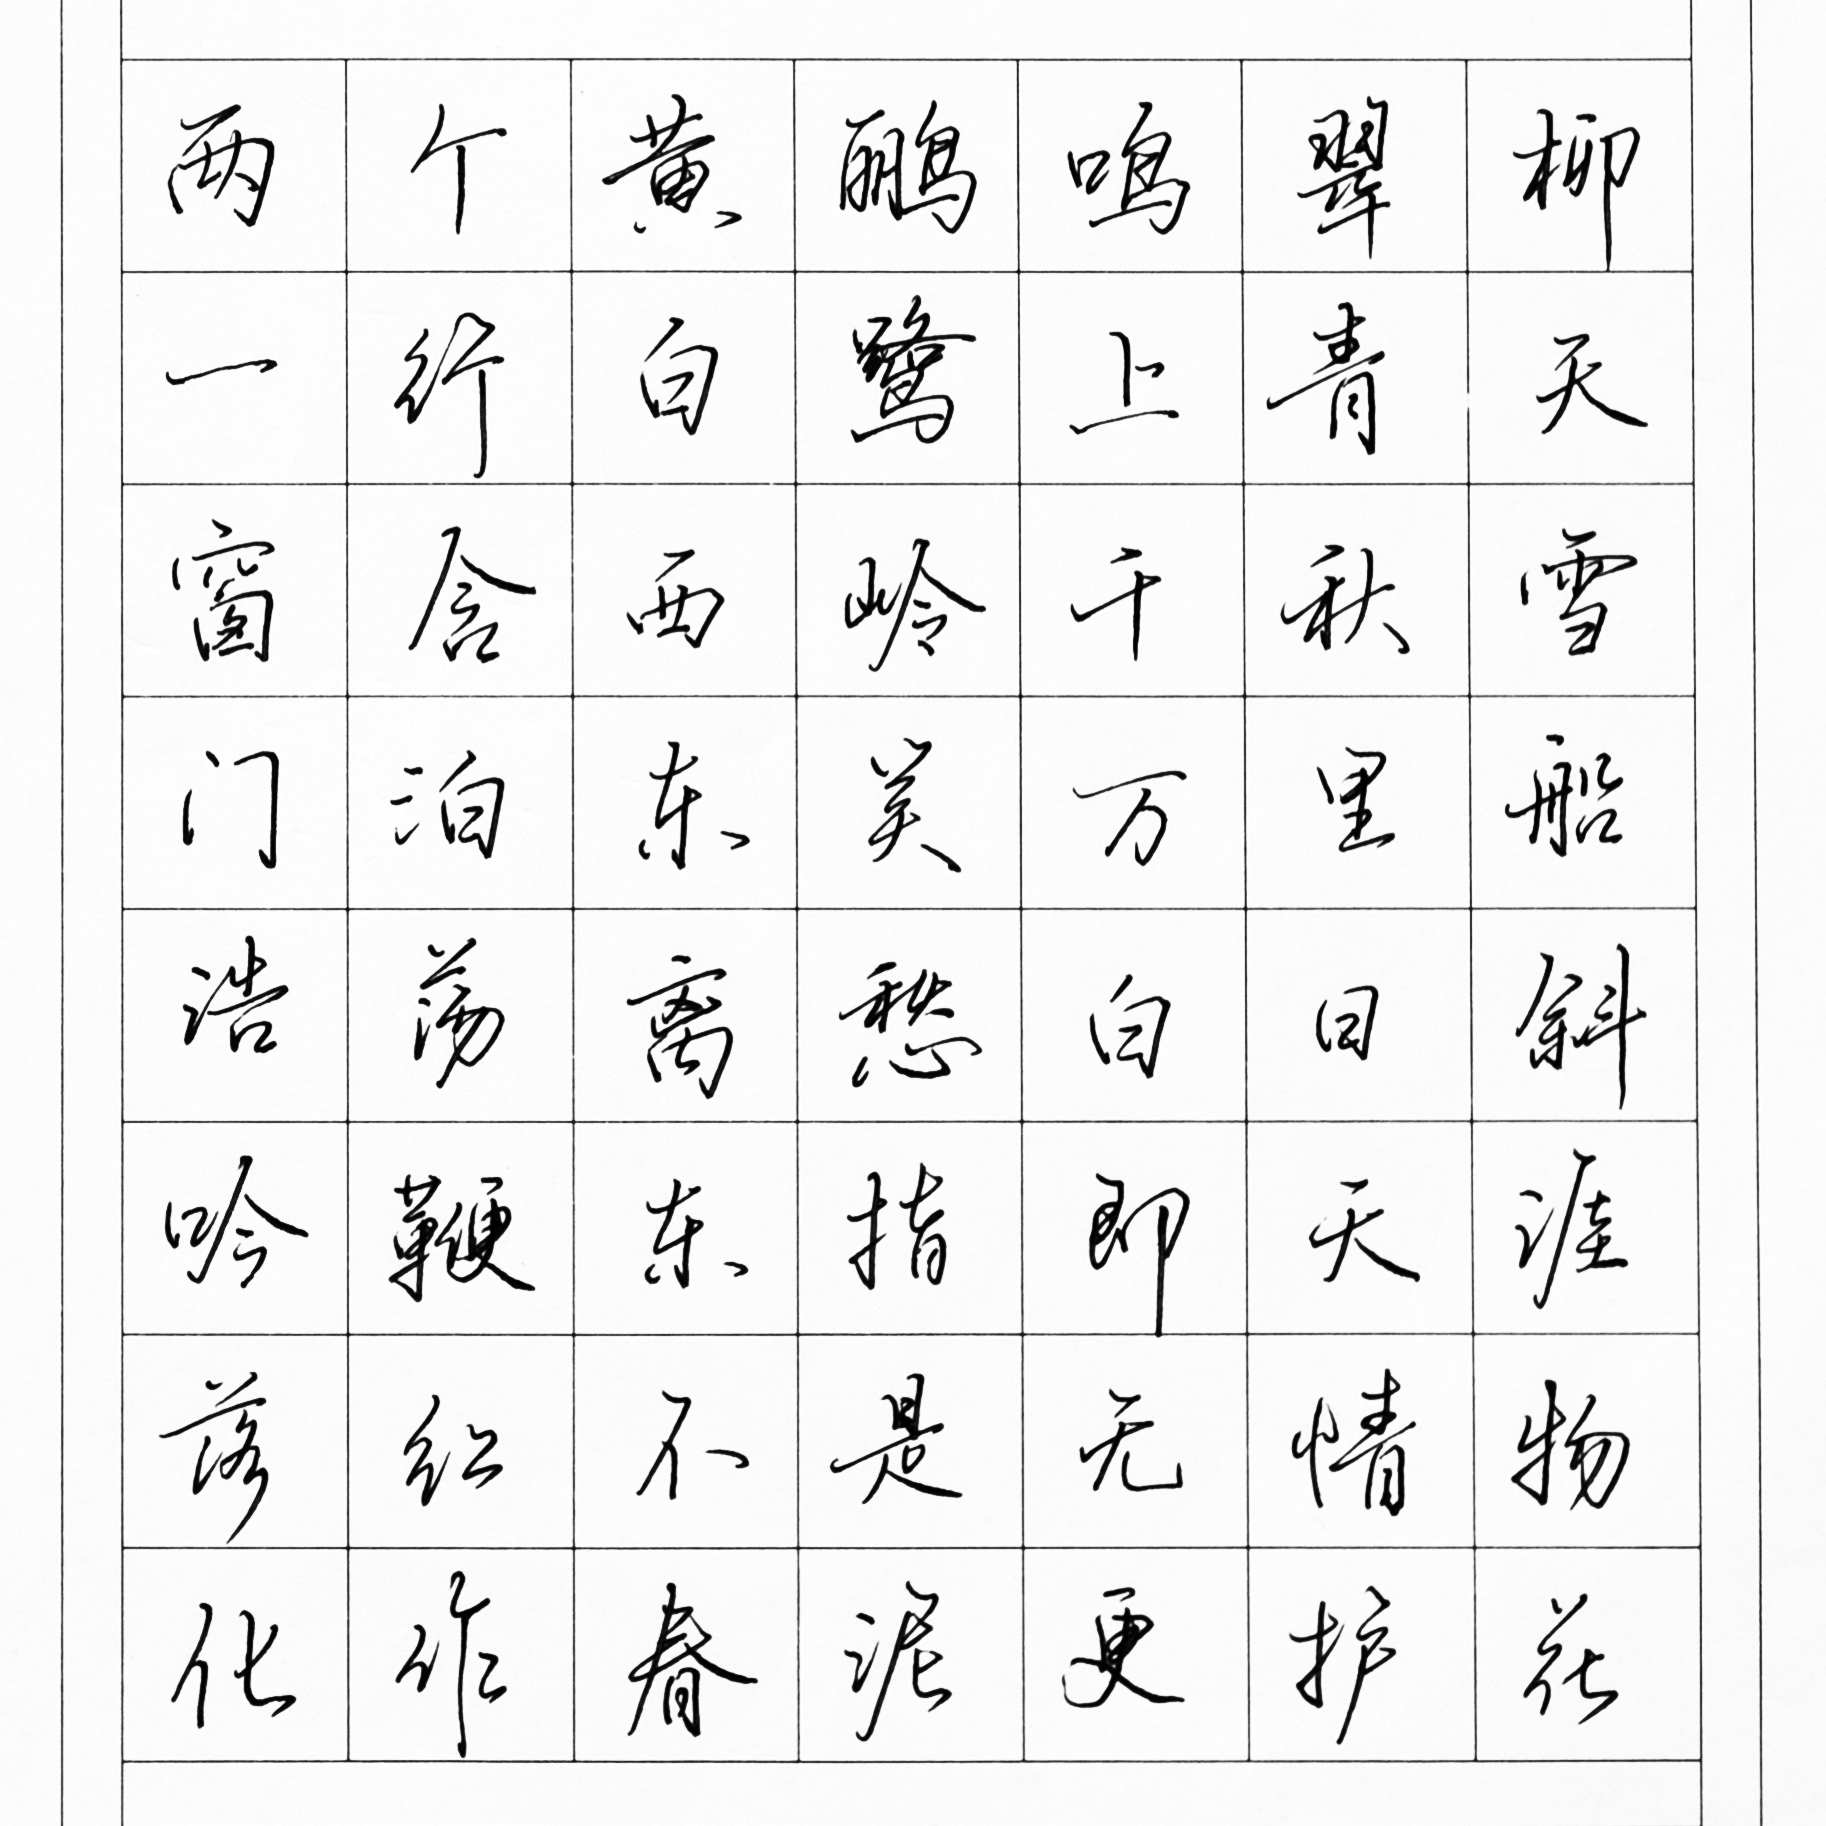 两个黄鹂鸣翠柳
一行白鹭上青天
窗含西岭千秋雪
门泊东吴万里船
浩荡离愁白日斜
吟鞭东指即天涯
落红不是无情物
化作春泥更护花